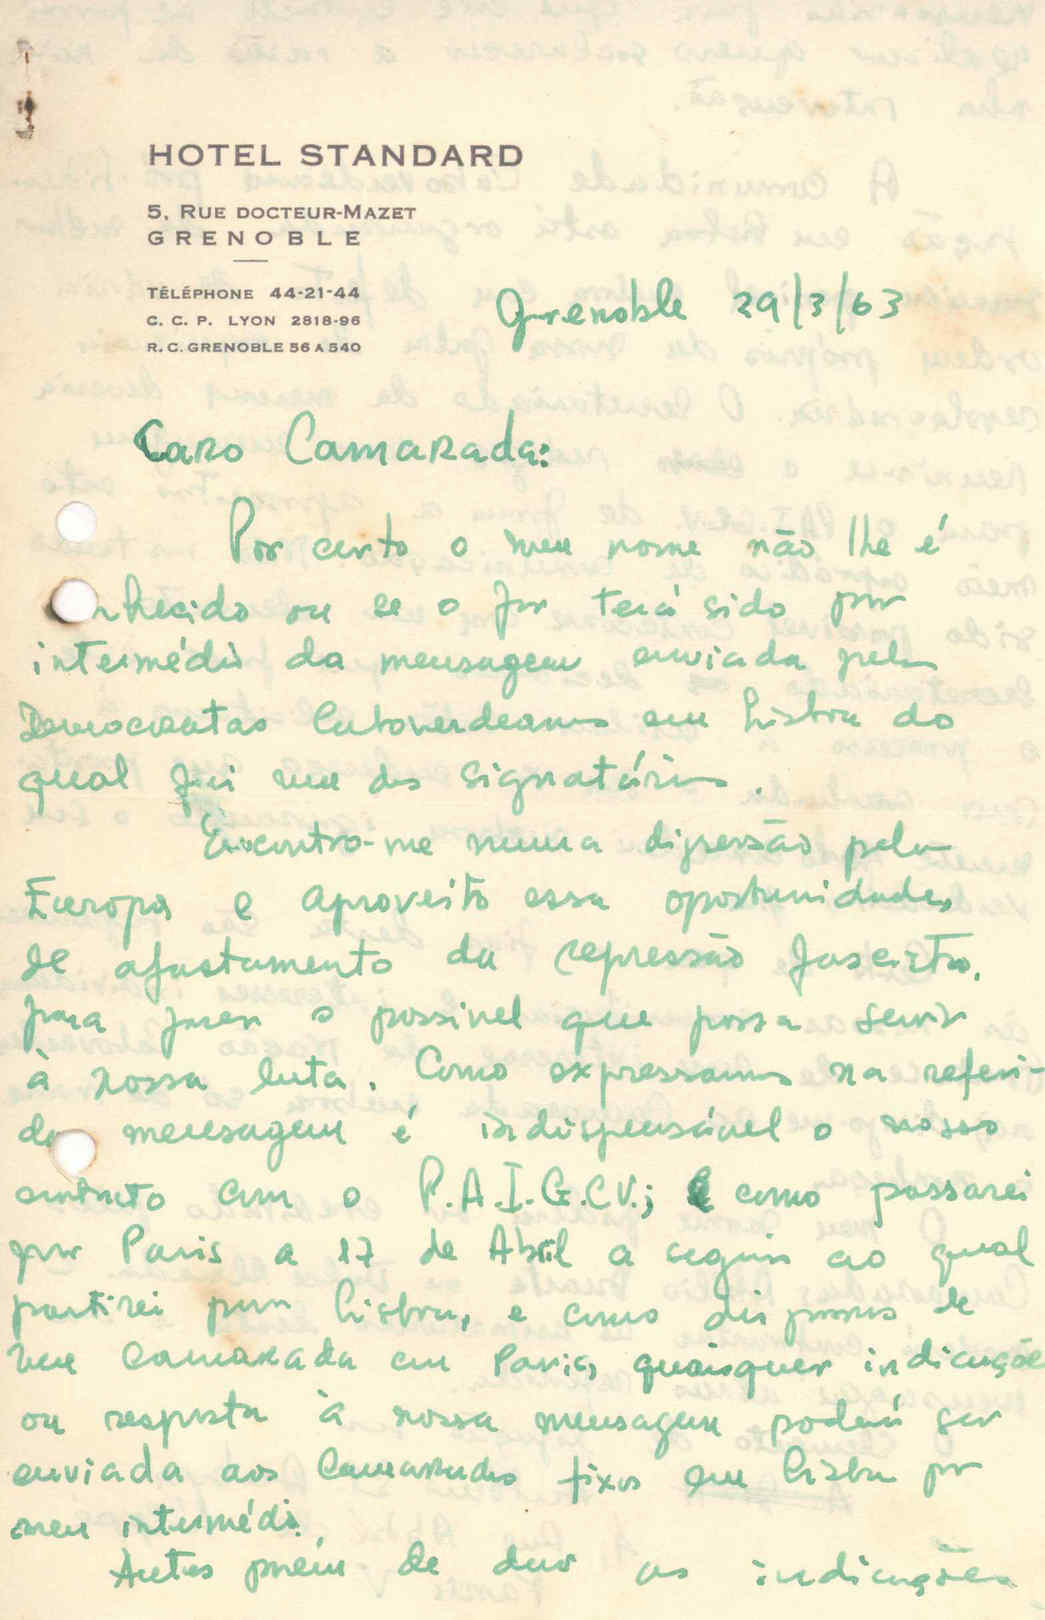 HOTEL STANDARD
5, RUE DOCTEUR-MAZET
GRENOBLE
TÉLÉPHONE 44-21-44
C. C. P. LYON 2818-96
R. C. GRENOBLE 56 A 540
Grenoble 29/3/63
Caro Camarada:
Por certo o meu nome não lhe é
nhecido ou se o for terá sido por
intermédio da mensagem enviada pelos
Democratas Caboverdeanos em Lisboa do
qual fui um dos signatários.
Encontro-me numa digressão pela
Europa e aproveito essa oportunidade,
de afastamento da repressão fascista,
para fazer o possível que possa servir
à nossa luta. Como expressamos na referi-
da mensagem é indispensável o nosso
contacto com o P.A.I.G.C.V.; e como passarei
por Paris a 17 de Abril a seguir ao qual
partirei para Lisboa, e como dispomos de
um Camarada em Paris, quaisquer indicações
ou resposta à nossa mensagem poderá ser
enviada aos Camaradas fixos em Lisboa por
meu intermédio.
Antes porém de dar as indicações